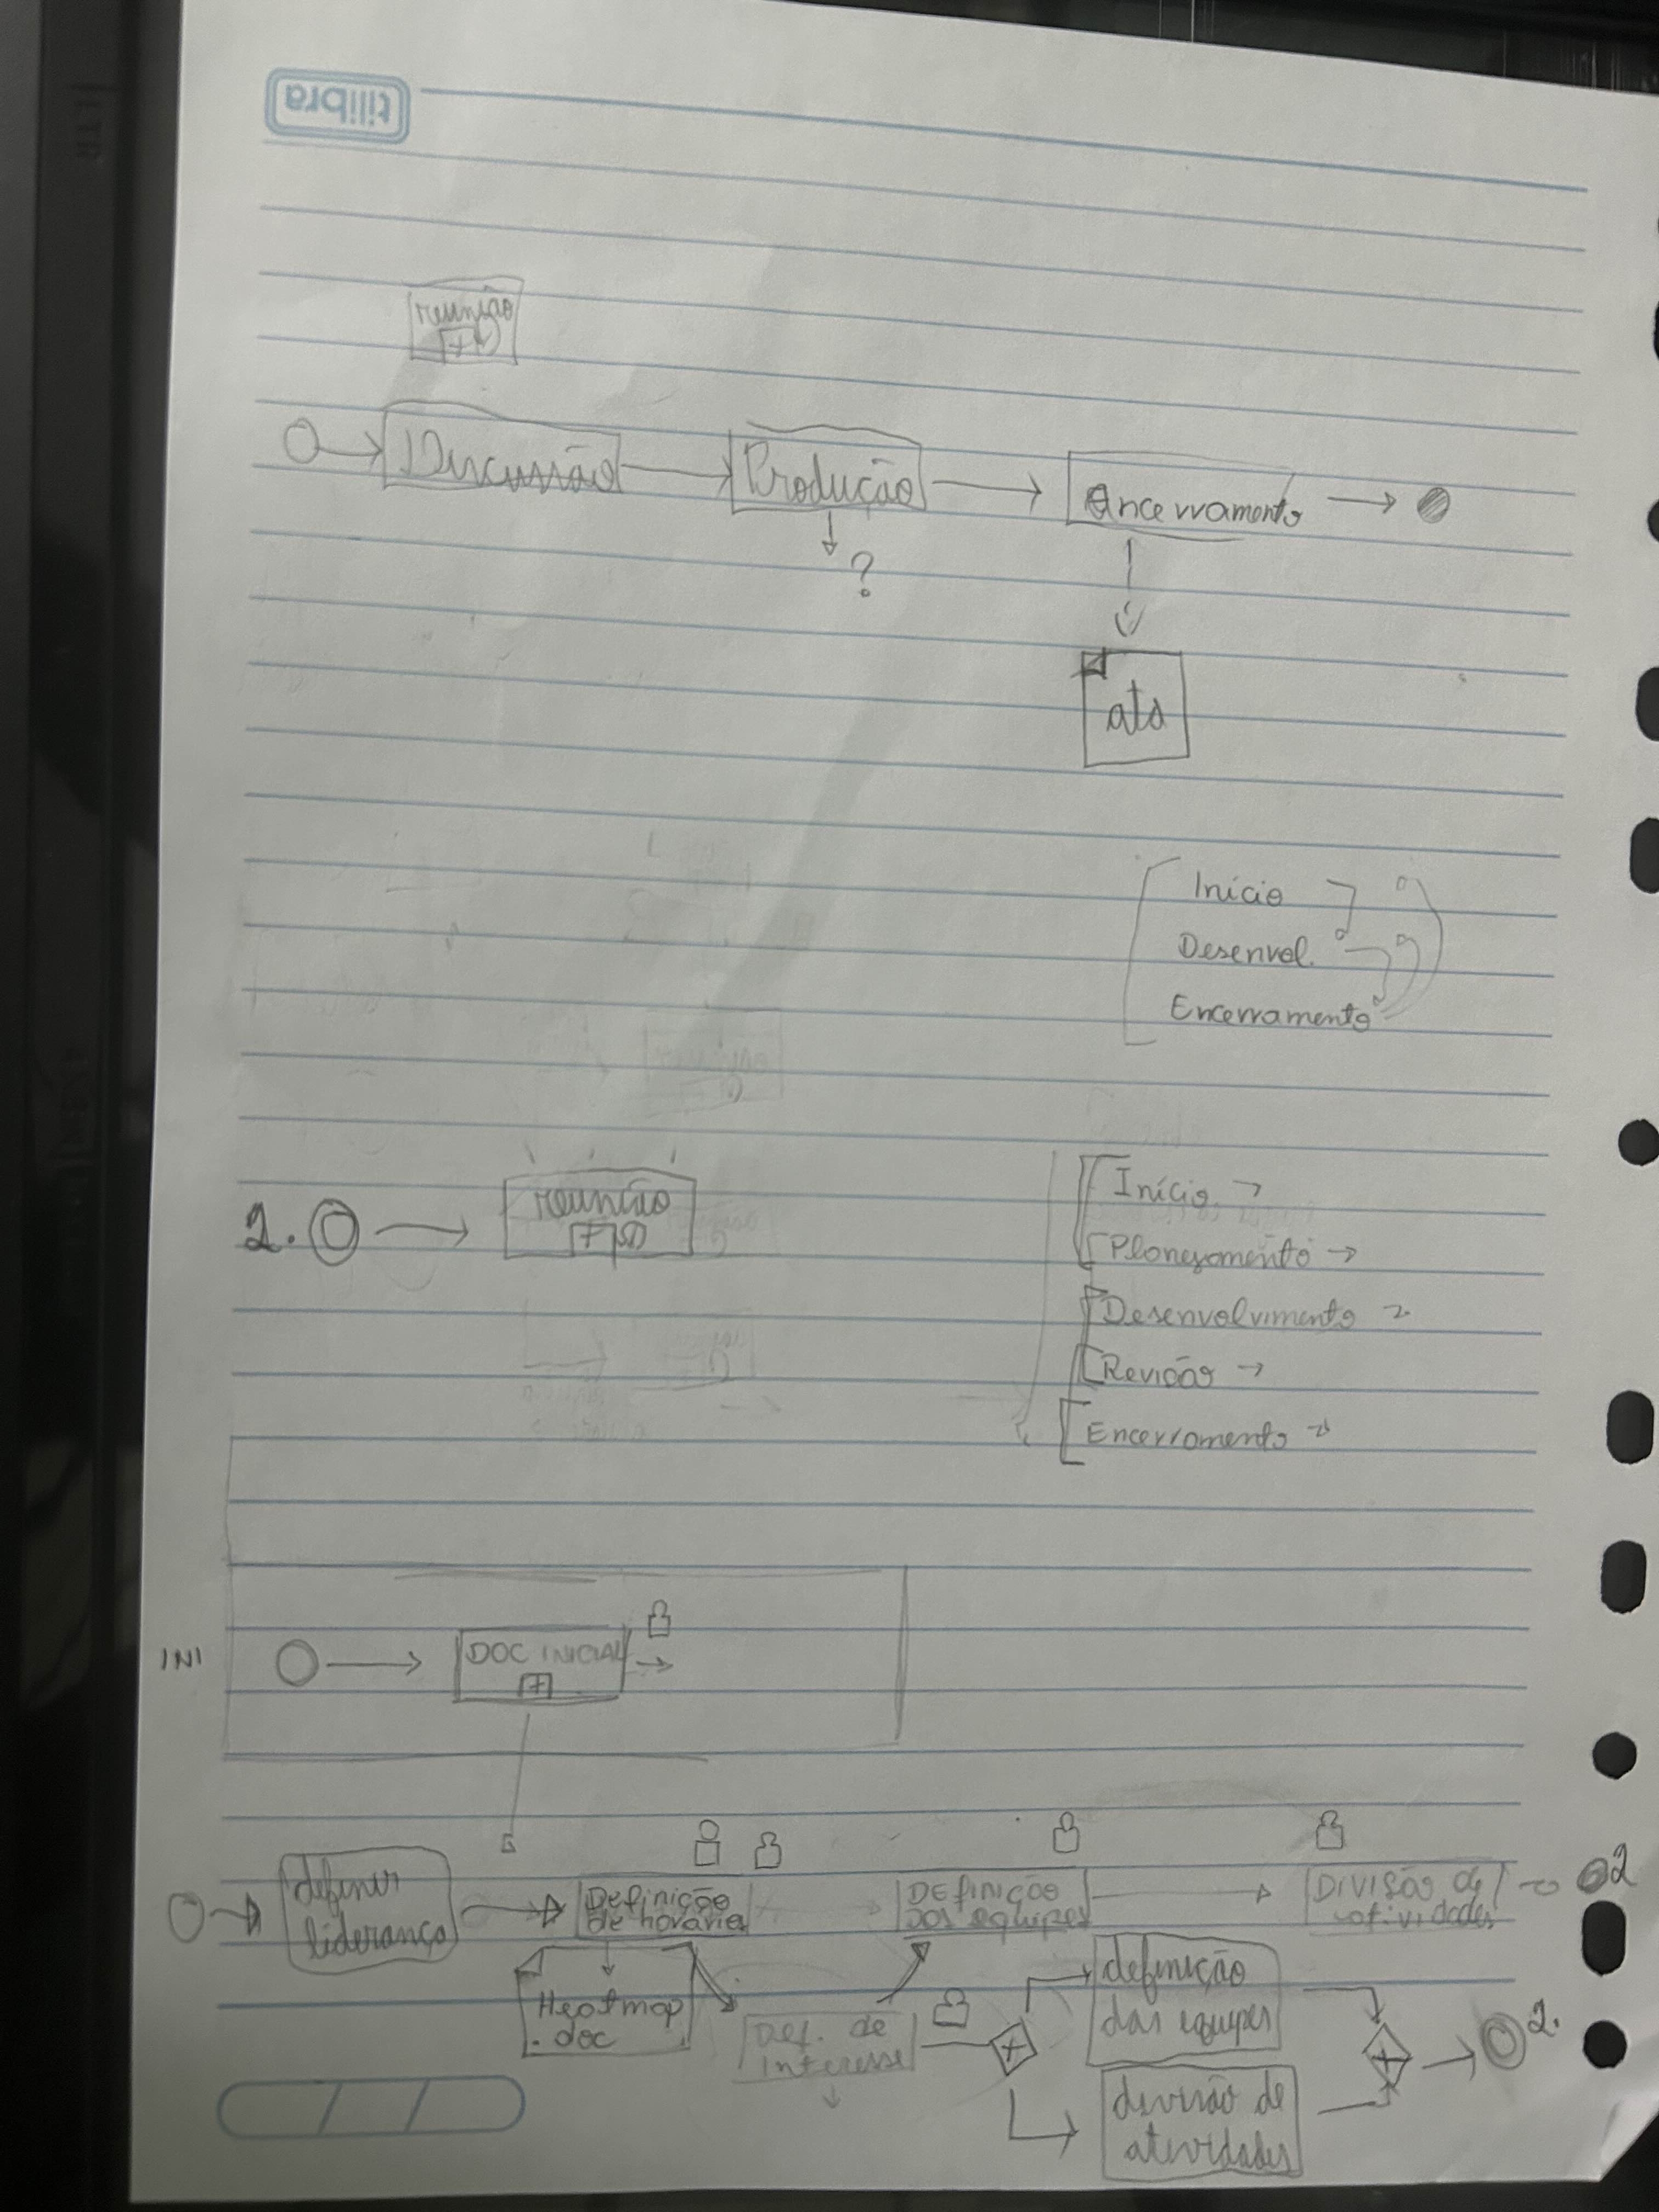 tilibra
reunião
+
Discussão
Produção
Encerramento
?
ata
Início
Desenvol.
Encerramento
2.
reunião
+
Início
Planejamento
Desenvolvimento
Revisão
Encerramento
INI
DOC INICIAL
+
definir
liderança
Definição
de horário
DEFINIÇÃO
DOS equipes
DIVISÃO de
atividades
2
Heatmap
.doc
Def. de
interesse
+
definição
das equipes
divisão de
atividades
+
2.